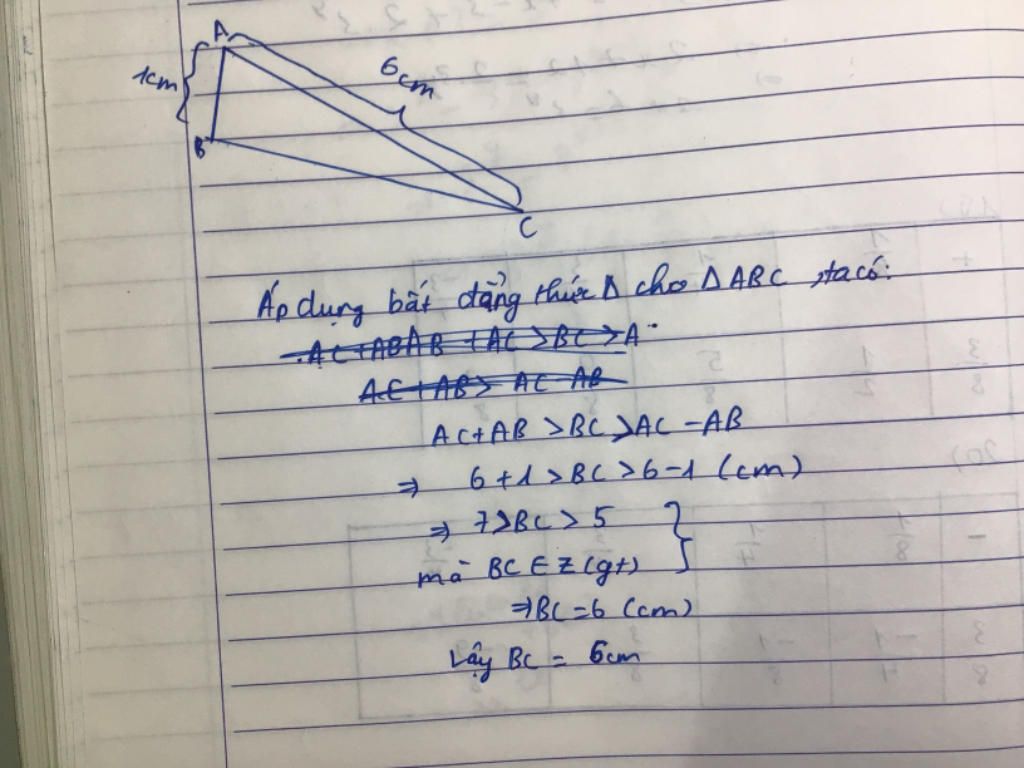 A
1cm
6cm
B
C
Áp dụng bất đẳng thức Δ cho Δ ABC, ta có:
AC+AB AB +AC >BC >A
AC+AB> AC-AB
AC+AB >BC >AC -AB
⇒ 6+1 >BC > 6-1 (cm)
⇒ 7>BC > 5
mà BC ∈ Z (gt)
⇒BC=6 (cm)
Vậy BC = 6cm